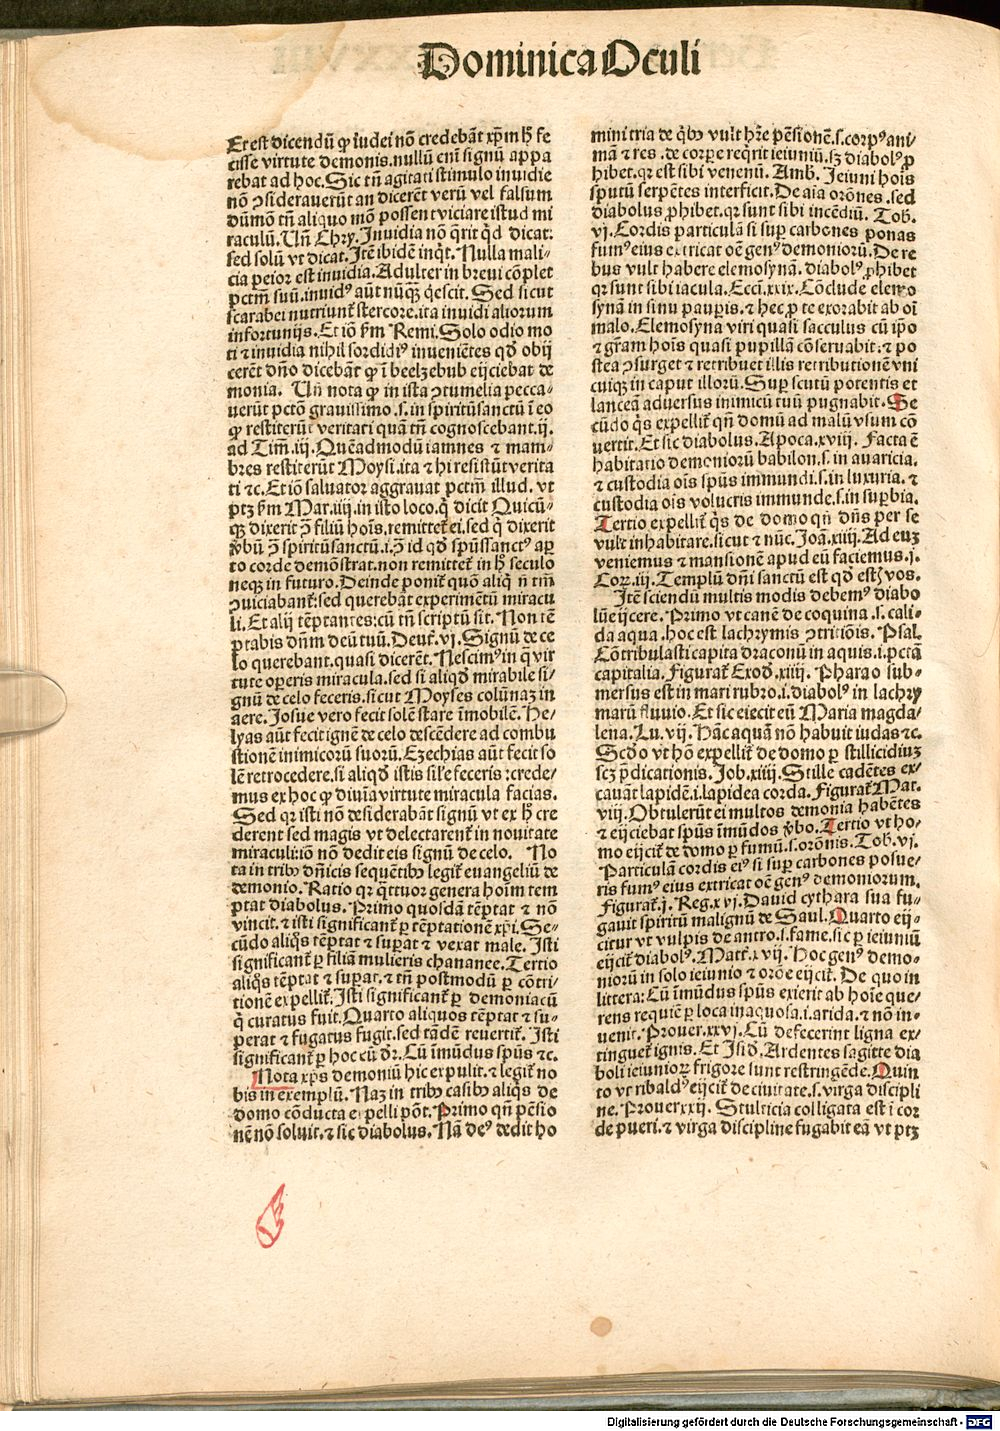 Dominica Oculi
Et est dicendū ꝙ iudei nō credebāt xp̄m hꝫ fe
cisse virtute demonis. nullū eni signū appa
rebat ad hoc. Sic tn̄ agitati stimulo inuidie
nō ↄsiderauerūt an dicerēt verū vel falsum
dūmō tn̄ aliquo mō possent viciare istud mi
raculū. Un̄ Chry. Inuidia nō q̄rit qd̄ dicat:
sed solū vt dicat. Itē ibidē inq̄t. Nulla mali⸗
cia peior est inuidia. Adulter in breui cōplet
pctm̄ suū. inuidꝰ aūt nūqꝫ q̄escit. Sed sicut
scarabei nutriunt̄ stercore. ita inuidi aliorum
infortunijs. Et iō ẜm Remi. Solo odio mo
ti ⁊ inuidia nihil sordidiꝰ inueniētes qd̄ obij
cerēt dn̄o dicebāt ꝙ ī beelzebub eijciebat de
monia. Un̄ nota ꝙ in ista ↄtumelia pecca⸗
uerūt pctō grauissimo. s. in spiritūsanctū ī eo
ꝙ restiterūt veritati quā tn̄ cognoscebant. ij.
ad Tim̄. iij. Quēadmodū iamnes ⁊ mam⸗
bres restiterūt Moysi. ita ⁊ hi resistūt verita
ti ⁊c. Et iō saluator aggrauat pctm̄ illud. vt
ptꝫ ẜm Mar. iiij. in isto loco. q̄ dicit Quicū⸗
qꝫ dixerit ↄ̄ filiū hoīs. remittet̄ ei. sed q̄ dixerit
v̄bū ↄ̄ spiritūsanctū. i. ↄ̄ id qd̄ sp̄ūssanctꝰ aꝑ
to corde demōstrat. non remittet̄ in hꝫ seculo
neqꝫ in futuro. Deinde ponit̄ quō aliq̄ n̄ tm̄
ↄuiciabant̄: sed querebāt experimētū miracu
li. Et alij tēptantes: cū tn̄ scriptū sit. Non tē
ptabis dn̄m deū tuū. Deut̄. vj. Signū de ce
lo querebant. quasi dicerēt. Nescimꝰ in q̄ vir
tute operis miracula. sed si aliqd̄ mirabile si⸗
gnū de celo feceris. sicut Moyses colūnaꝫ in
aere. Josue vero fecit solē stare īmobilē. He⸗
lyas aūt fecit ignē de celo descēdere ad combu
stionē inimicorū suorū. Ezechias aūt fecit so
lē retrocedere. si aliqd̄ istis sil̄e feceris: crede⸗
mus ex hoc ꝙ diuīa virtute miracula facias.
Sed qꝛ isti nō desiderabāt signū vt ex hꝫ cre
derent sed magis vt delectarent̄ in nouitate
miraculi: iō nō dedit eis signū de celo. No
ta in tribꝰ dn̄icis sequētibꝰ legit̄ euangeliū de
demonio. Ratio qꝛ q̄ttuor genera hoīm tem
ptat diabolus. Primo quosdā tēptat ⁊ nō
vincit. ⁊ isti significant̄ ꝑ tēptationē xp̄i. Se⸗
cūdo aliq̄s tēptat ⁊ suꝑat ⁊ vexat male. Isti
significant̄ ꝑ filiā mulieris chananee. Tertio
aliq̄s tēptat ⁊ suꝑat. ⁊ tn̄ postmodū ꝑ cōtri⸗
tionē expellit̄. Isti significant̄ ꝑ demoniacū
q̄ curatus fuit. Quarto aliquos tēptat ⁊ su⸗
perat ⁊ fugatus fugit. sed tādē reuertit̄. Isti
significant̄ ꝑ hoc cū dr̄. Cū īmūdus sp̄ūs ⁊c.
Nota xp̄s demoniū hic expulit. ⁊ legit̄ no
bis in exemplū. Naꝫ in tribꝰ casibꝰ aliq̄s de
domo cōducta expelli pōt. Primo qn̄ pēsio
nē nō soluit. ⁊ sic diabolus. Nā deꝰ dedit ho
mini tria de q̄bꝰ vult hr̄e pēsionē. s. corpꝰ ani⸗
mā ⁊ res. de corpe reqrit ieiuniū. sꝫ diabolꝰ ꝓ
hibet. qꝛ est sibi venenū. Amb. Ieiuni hoīs
sputū serpētes interficit. De aīa orōnes. sed
diabolus ꝓhibet. qꝛ sunt sibi incēdiū. Tob.
vj. Cordis particulā si suꝑ carbones ponas
fumꝰ eius extricat oē genꝰ demoniorū. De re
bus vult habere elemosynā. diabolꝰ ꝓhibet
qꝛ sunt sibi iacula. Ecci. xxix. Cōclude elemo
synā in sinu pauꝑis. ⁊ hec ꝓ te exorabit ab oī
malo. Elemosyna viri quasi sacculus cū ip̄o
⁊ gr̄am hoīs quasi pupillā cōseruabit: ⁊ po
stea ↄsurget ⁊ retribuet illis retributionē vni
cuiqꝫ in caput illorū. Suꝑ scutū potentis et
lanceā aduersus inimicū tuū pugnabit. Se
cūdo q̄s expellit̄ qn̄ domū ad malū vsum cō
uertit. Et sic diabolus. Apoca. xviij. Facta ē
habitatio demoniorū babilon. s. in auaricia.
⁊ custodia oīs sp̄ūs immundi. s. in luxuria. ⁊
custodia oīs volucris immunde. s. in suꝑbia.
Tertio expellit̄ q̄s de domo qn̄ dn̄s per se
vult inhabitare. sicut ⁊ nūc. Joā. xiiij. Ad euꝫ
veniemus ⁊ mansionē apud eū faciemus. j.
Corꝝ. iij. Templū dn̄i sanctū est qd̄ estꝫ vos.
Itē sciendū multis modis debemꝰ diabo
lū eijcere. Primo vt canē de coquina. s. cali⸗
da aqua. hoc est lachrymis ↄtritiōis. Psal.
Cōtribulasti capita draconū in aquis. i. pctā
capitalia. Figurat̄ Exod. xiiij. Pharao sub⸗
mersus est in mari rubro. i. diabolꝰ in lachry
marū fluuio. Et sic eiecit eū Maria magda⸗
lena. Lu. vij. Hāc aquā nō habuit iudas ⁊c.
Scd̄o vt hō expellit̄ de domo ꝑ stillicidiuꝫ
scꝫ p̄dicationis. Job. xiiij. Stille cadētes ex⸗
cauāt lapidē. i. lapidea corda. Figurat̄ Mat.
viij. Obtulerūt ei multos demonia habētes
⁊ eijciebat sp̄ūs īmūdos v̄bo. Tertio vt ho⸗
mo eijcit̄ de domo ꝑ fumū. s. orōnis. Tob. vj.
Particulā cordis eiꝰ si suꝑ carbones posue⸗
ris fumꝰ eius extricat oē genꝰ demoniorum.
Figurat̄. j. Reg. xvj. Dauid cythara sua fu⸗
gauit spiritū malignū de Saul. Quarto eij⸗
citur vt vulpis de antro. s. fame. sic ꝑ ieiuniū
eijcit̄ diabolꝰ. Matt̄. xvij. Hoc genꝰ demo⸗
niorū in solo ieiunio ⁊ orōe eijcit̄. De quo in
littera: Cū īmūdus sp̄ūs exierit ab hoīe que⸗
rens requiē ꝑ loca inaquosa. i. arida. ⁊ nō in⸗
uenit. Prouer. xxvj. Cū defecerint ligna ex⸗
tinguet̄ ignis. Et Isid. Ardentes sagitte dia
boli ieiuniorꝝ frigore sunt restringēde. Quin
to vt ribaldꝰ eijcit̄ de ciuitate. s. virga discipli
ne. Prouer xxij. Stulticia colligata est ī cor
de pueri. ⁊ virga discipline fugabit eā vt ptꝫ
Digitalisierung gefördert durch die Deutsche Forschungsgemeinschaft - DFG